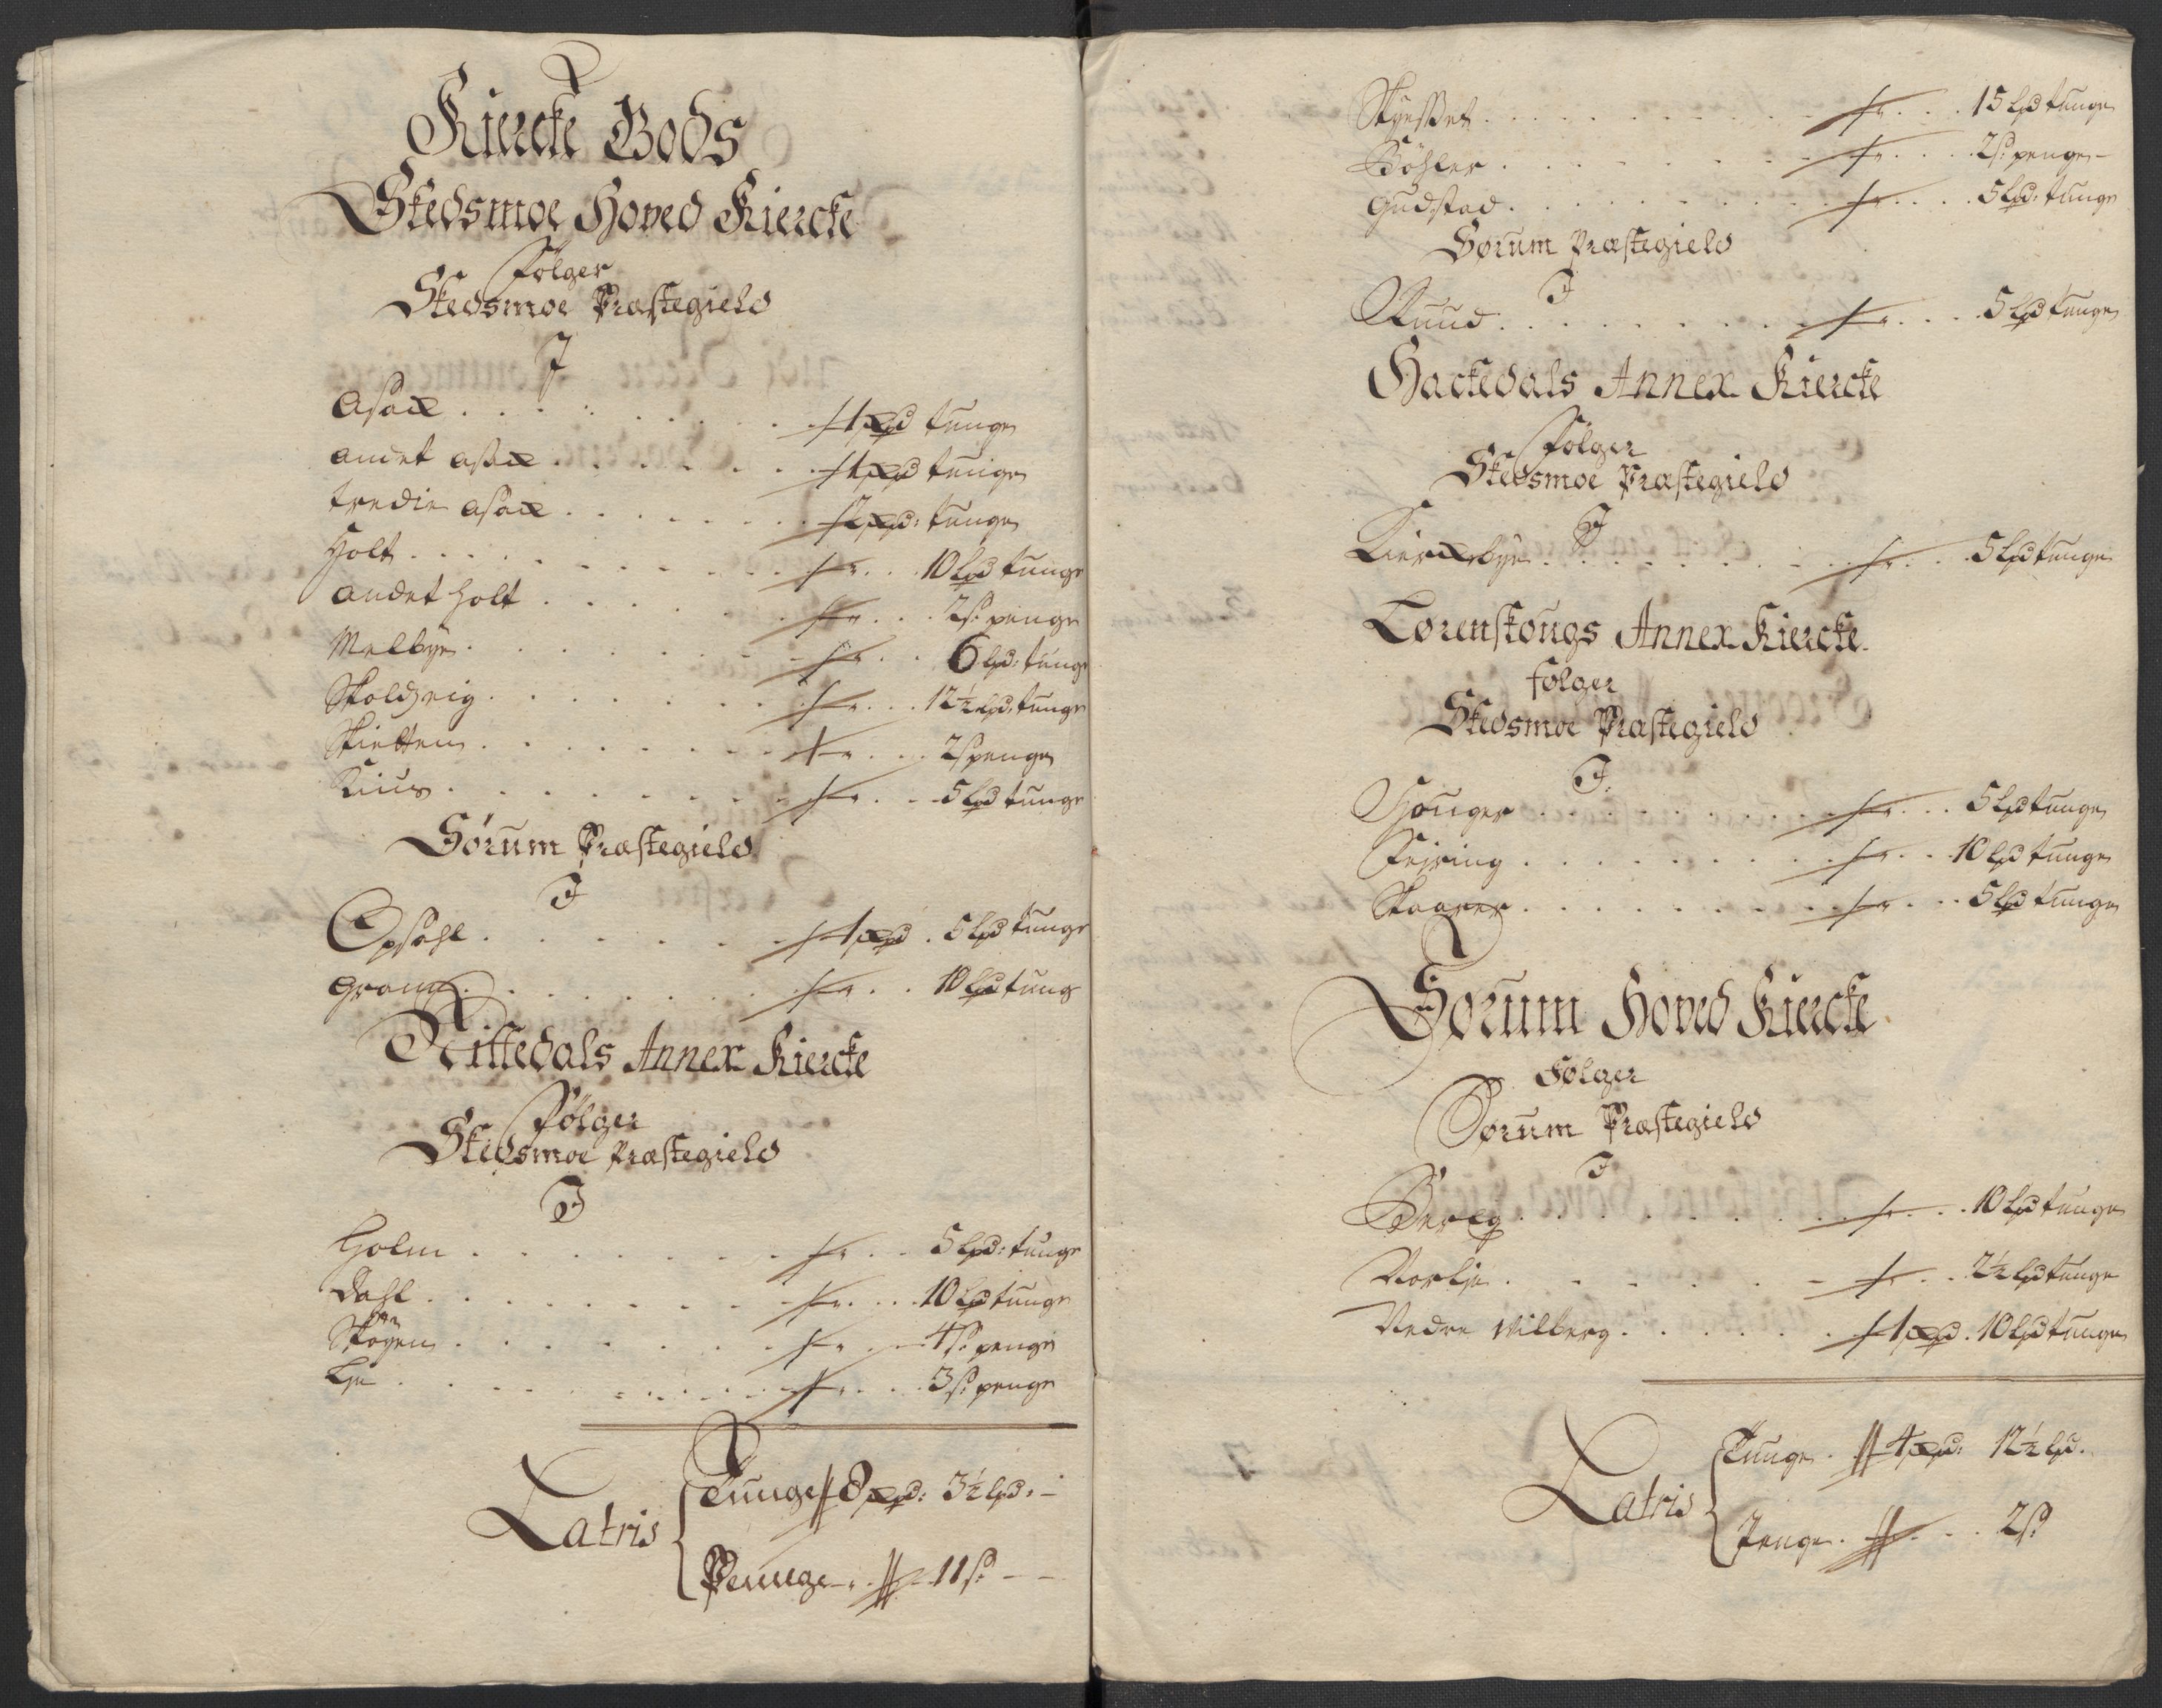 Kiercke Gods
Skedsmoe Hoved Kiercke
Følger
Skedsmoe Præstegield
I
Asach . . . . . 1 skpd tunge
andet asach . . . . . 1 skpd tunge
tredie asach . . . . . 2 skpd: tunge
Holt . . . . . 10 lpd tunge
andet holt . . . . . 2 s: penge
Melbye . . . . . 6 lpd: tunge
Skoldveig . . . . . 12½ lpd: tunge
Skietten . . . . . 2 s penge
Kius . . . . . 5 lpd tunge
Sørum Præstegield
I
Opsahl . . . . . 1 skpd . 5 lpd tunge
. . . . . 10 lpd tung
Nittedals Annex Kiercke
Følger
Skedsmoe Præstegield
I
Holm . . . . . 5 lpd: tunge
Dahl . . . . . 10 lpd tunge
Skøyen . . . . . 4 s: penge
Lie . . . . . 3 s: penge
Latris
Tunge 8 skpd: 3½ lpd: –
Penge 11 s: – –
. . . . . 15 lpd tunge
Bøhler . . . . . 2 s: penge –
Gudstad . . . . . 5 lpd: tunge
Sørum Præstegield
I
Ruud . . . . . 5 lpd tunge
Hackedals Annex Kiercke
Følger
Skedsmoe Præstegield
I
Kierckebye . . . . . 5 lpd tunge
Lørenskougs Annex Kiercke
følger
Skedsmoe Præstegield
I
Houger . . . . . 5 lpd tunge
Feiring . . . . . 10 lpd tunge
Skaarer . . . . . 5 lpd tunge
Sørum Hoved Kiercke
Følger
Sørum Præstegield
I
Bereg . . . . . 10 lpd tunge
Norlie . . . . . 2½ lpd tunge
Nedre Vilberg . . . . . 1 skpd . 10 lpd tunge
Latris
Tunge . 4 skpd: 12½ lpd.
Penge . . . 2 s: